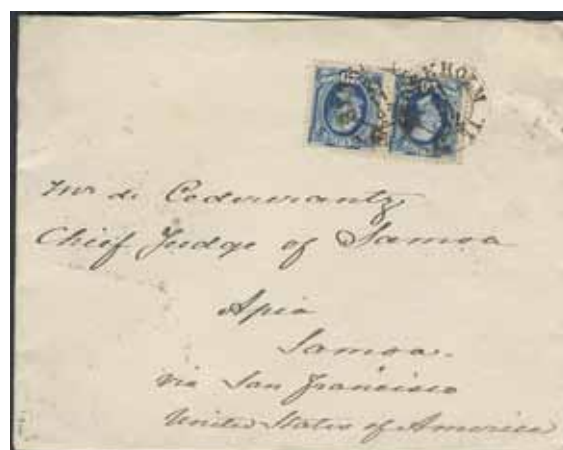 STOCKHOLM
Mr de Cedercrantz
Chief Judge of Samoa
Apia
Samoa.
via San Francisco
United States of America